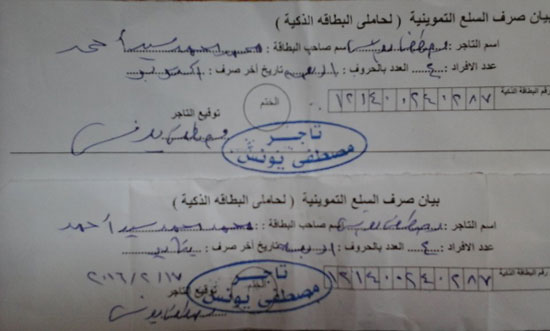 بيان صرف السلع التموينية ( لحاملى البطاقه الذكية )
اسم التاجر : مصطفى يونس اسم صاحب البطاقة : محمد محمد سيد أحمد
عدد الافراد : ٤ العدد بالحروف : اربعه تاريخ أخر صرف : اكتوبر
رقم البطاقة الذكية ١٢١٤٠٠٢٤٠٢٨٧
الختم
توقيع التاجر
مصطفى يونس
تاجر
مصطفى يونس
بيان صرف السلع التموينية ( لحاملى البطاقه الذكية )
اسم التاجر : مصطفى يونس اسم صاحب البطاقة : محمد محمد سيد أحمد
عدد الافراد : ٤ العدد بالحروف : اربعه تاريخ أخر صرف : يناير
رقم البطاقة الذكية ١٢١٤٠٠٢٤٠٢٨٧
٢٠١٦/٢/١٧
توقيع التاجر
تاجر
مصطفى يونس
مصطفى يونس